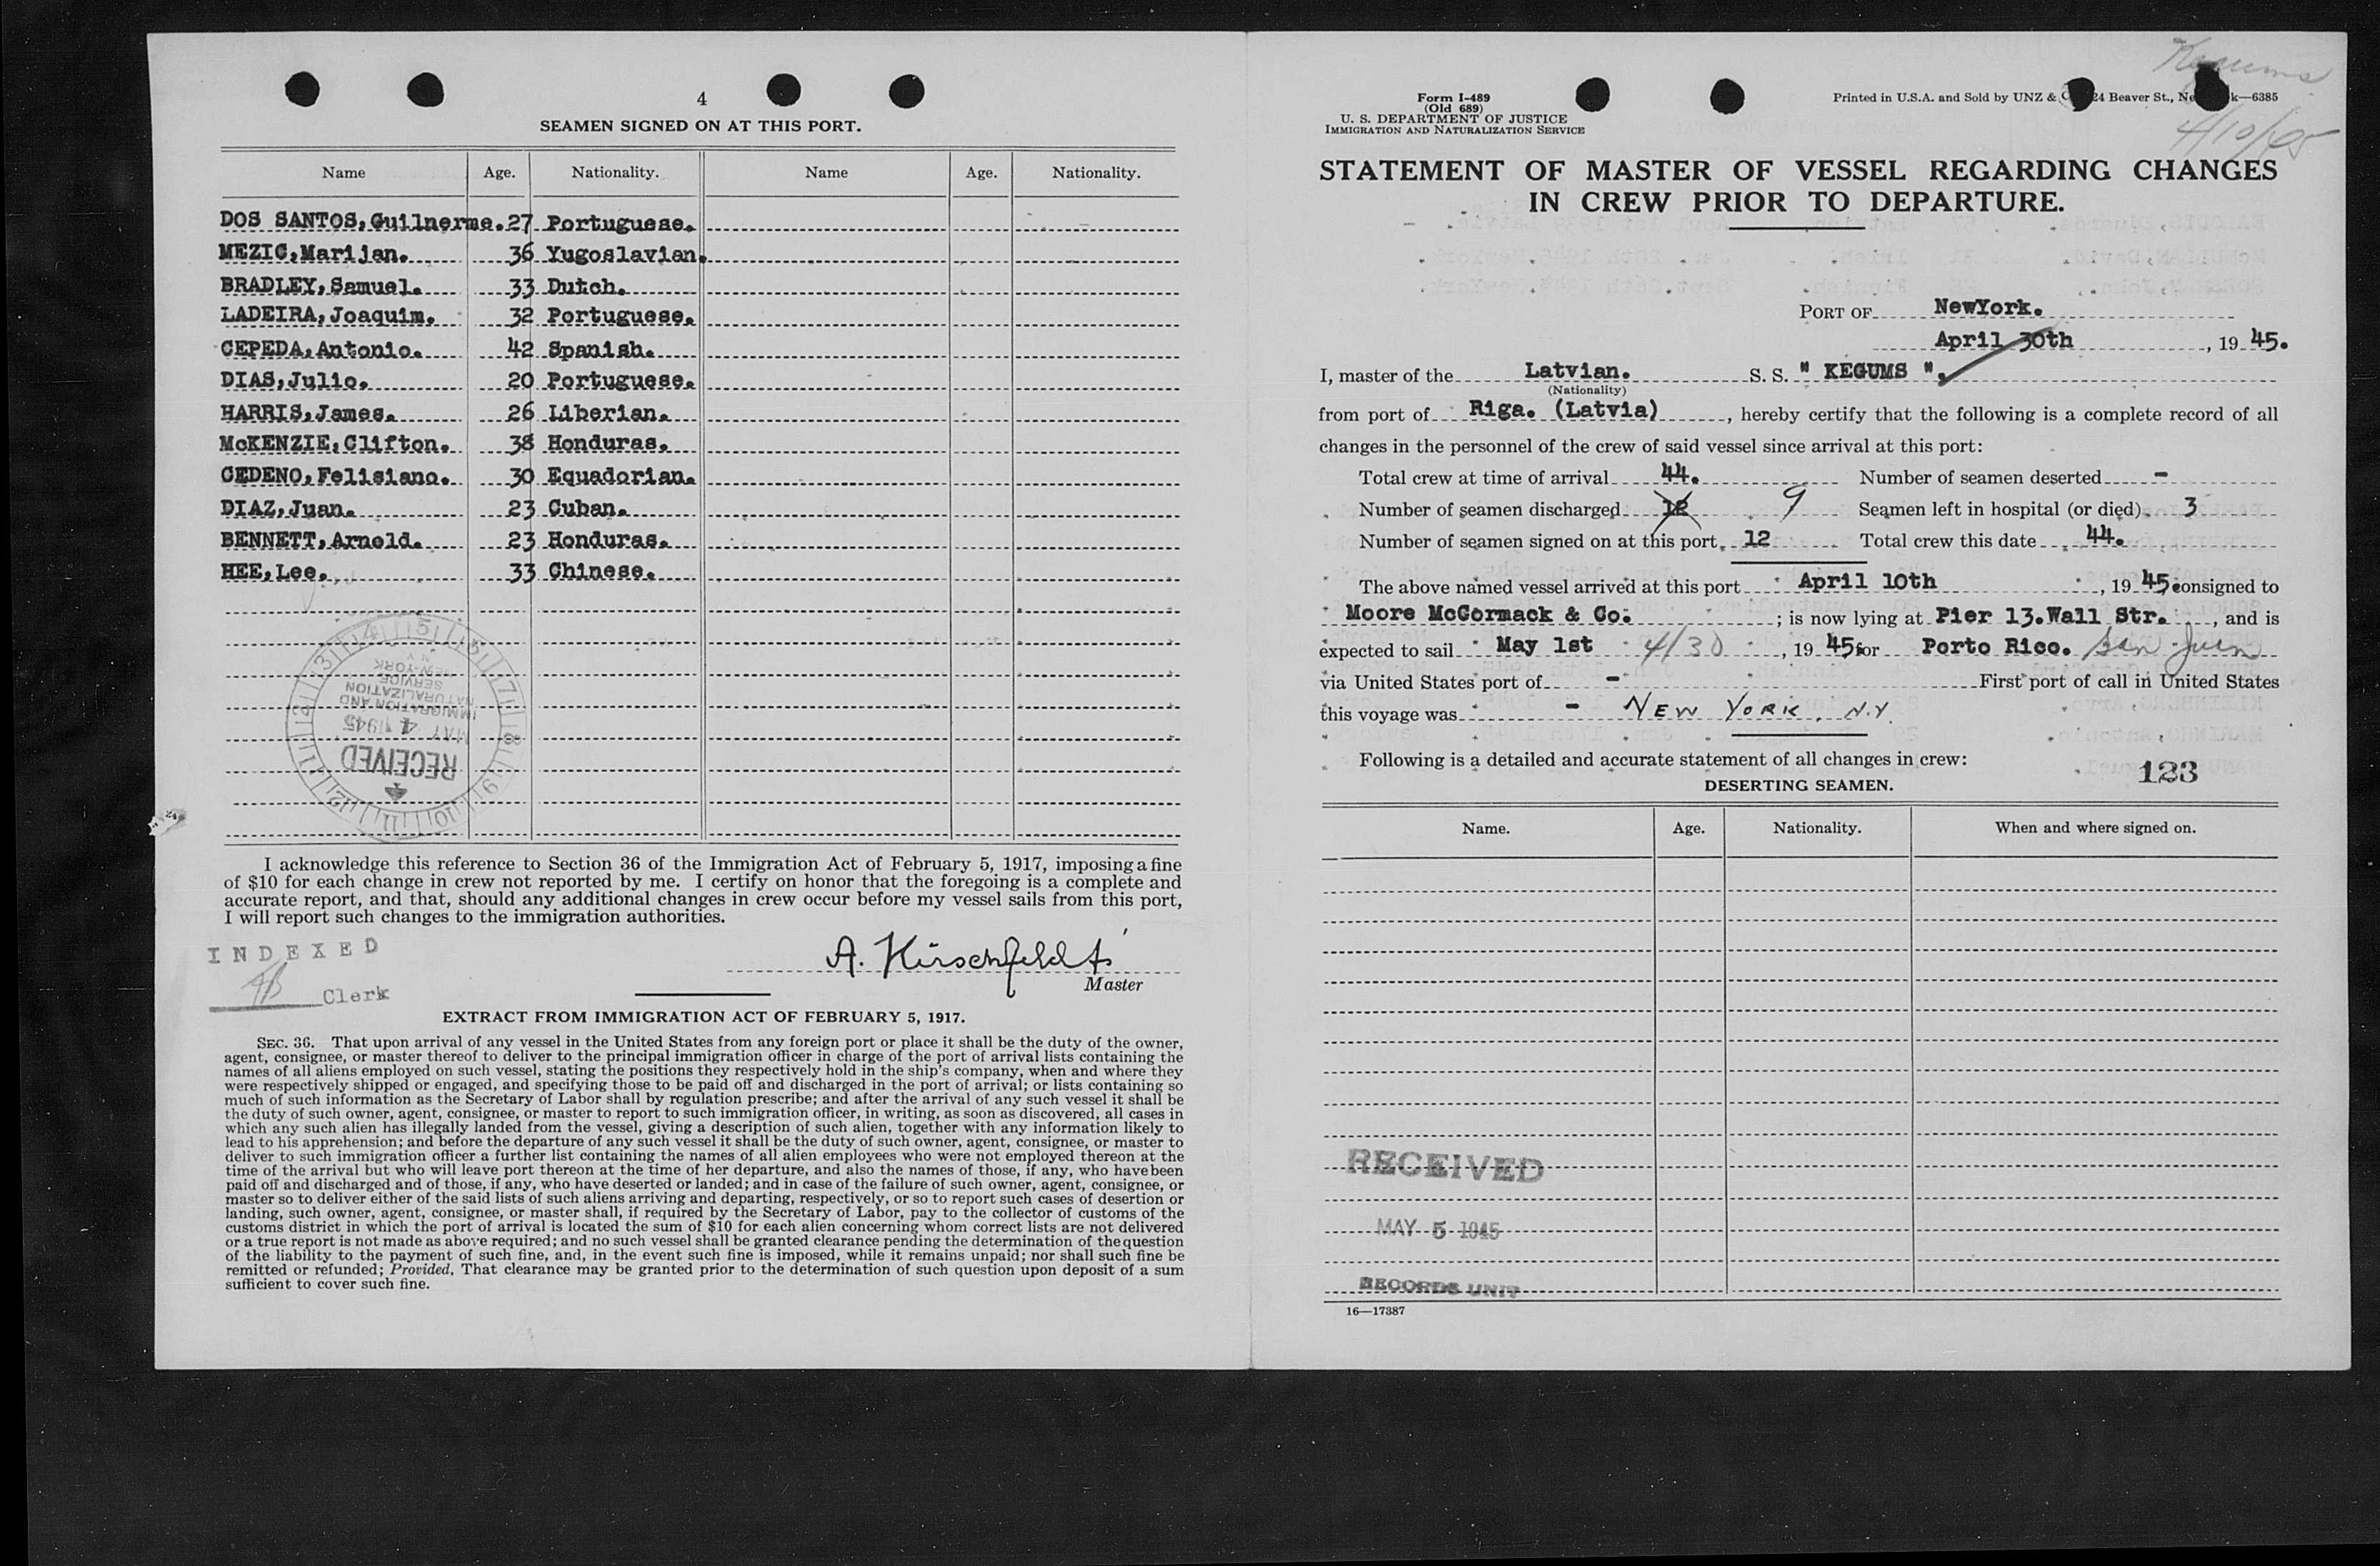 4
SEAMEN SIGNED ON AT THIS PORT.
Name Age. Nationality. Name Age. Nationality.
DOS SANTOS,Guilnerme. 27 Portuguese.
MEZIC,Marijan. 36 Yugoslavian.
BRADLEY,Samuel. 33 Dutch.
LADEIRA,Joaquim. 32 Portuguese.
CEPEDA,Antonio. 42 Spanish.
DIAS,Julio. 20 Portuguese.
HARRIS,James. 26 Liberian.
McKENZIE,Clifton. 38 Honduras.
CEDENO,Felisiano. 30 Equadorian.
DIAZ,Juan. 23 Cuban.
BENNETT,Arnold. 23 Honduras.
HEE,Lee. 33 Chinese.
RECEIVED
MAY 4 1945
IMMIGRATION AND
NATURALIZATION
SERVICE
NEW-YORK
N.Y.
I acknowledge this reference to Section 36 of the Immigration Act of February 5, 1917, imposing a fine
of $10 for each change in crew not reported by me. I certify on honor that the foregoing is a complete and
accurate report, and that, should any additional changes in crew occur before my vessel sails from this port,
I will report such changes to the immigration authorities.
INDEXED
Clerk
A. Hirschfeldt
Master
EXTRACT FROM IMMIGRATION ACT OF FEBRUARY 5, 1917.
SEC. 36. That upon arrival of any vessel in the United States from any foreign port or place it shall be the duty of the owner,
agent, consignee, or master thereof to deliver to the principal immigration officer in charge of the port of arrival lists containing the
names of all aliens employed on such vessel, stating the positions they respectively hold in the ship's company, when and where they
were respectively shipped or engaged, and specifying those to be paid off and discharged in the port of arrival; or lists containing so
much of such information as the Secretary of Labor shall by regulation prescribe; and after the arrival of any such vessel it shall be
the duty of such owner, agent, consignee, or master to report to such immigration officer, in writing, as soon as discovered, all cases in
which any such alien has illegally landed from the vessel, giving a description of such alien, together with any information likely to
lead to his apprehension; and before the departure of any such vessel it shall be the duty of such owner, agent, consignee, or master to
deliver to such immigration officer a further list containing the names of all alien employees who were not employed thereon at the
time of the arrival but who will leave port thereon at the time of her departure, and also the names of those, if any, who have been
paid off and discharged and of those, if any, who have deserted or landed; and in case of the failure of such owner, agent, consignee, or
master so to deliver either of the said lists of such aliens arriving and departing, respectively, or so to report such cases of desertion or
landing, such owner, agent, consignee, or master shall, if required by the Secretary of Labor, pay to the collector of customs of the
customs district in which the port of arrival is located the sum of $10 for each alien concerning whom correct lists are not delivered
or a true report is not made as above required; and no such vessel shall be granted clearance pending the determination of the question
of the liability to the payment of such fine, and, in the event such fine is imposed, while it remains unpaid; nor shall such fine be
remitted or refunded; Provided, That clearance may be granted prior to the determination of such question upon deposit of a sum
sufficient to cover such fine.
Kegums
4/10/45
Form I-489
(Old 689)
U. S. DEPARTMENT OF JUSTICE
IMMIGRATION AND NATURALIZATION SERVICE
Printed in U.S.A. and Sold by UNZ & 24 Beaver St., —6385
STATEMENT OF MASTER OF VESSEL REGARDING CHANGES
IN CREW PRIOR TO DEPARTURE.
PORT OF NewYork.
April 30th, 19 45.
I, master of the Latvian. S. S. " KEGUMS ".
(Nationality)
from port of Riga. (Latvia), hereby certify that the following is a complete record of all
changes in the personnel of the crew of said vessel since arrival at this port:
Total crew at time of arrival 44. Number of seamen deserted -
Number of seamen discharged 12 9 Seamen left in hospital (or died) 3
Number of seamen signed on at this port 12 Total crew this date 44.
The above named vessel arrived at this port April 10th, 19 45 consigned to
Moore McCormack & Co.; is now lying at Pier 13.Wall Str., and is
expected to sail May 1st 4/30, 19 45 for Porto Rico. San Juan
via United States port of - First port of call in United States
this voyage was - NEW YORK, N.Y.
Following is a detailed and accurate statement of all changes in crew:
123
DESERTING SEAMEN.
Name. Age. Nationality. When and where signed on.
RECEIVED
MAY 5 1945
RECORDS UNIT
16—17387